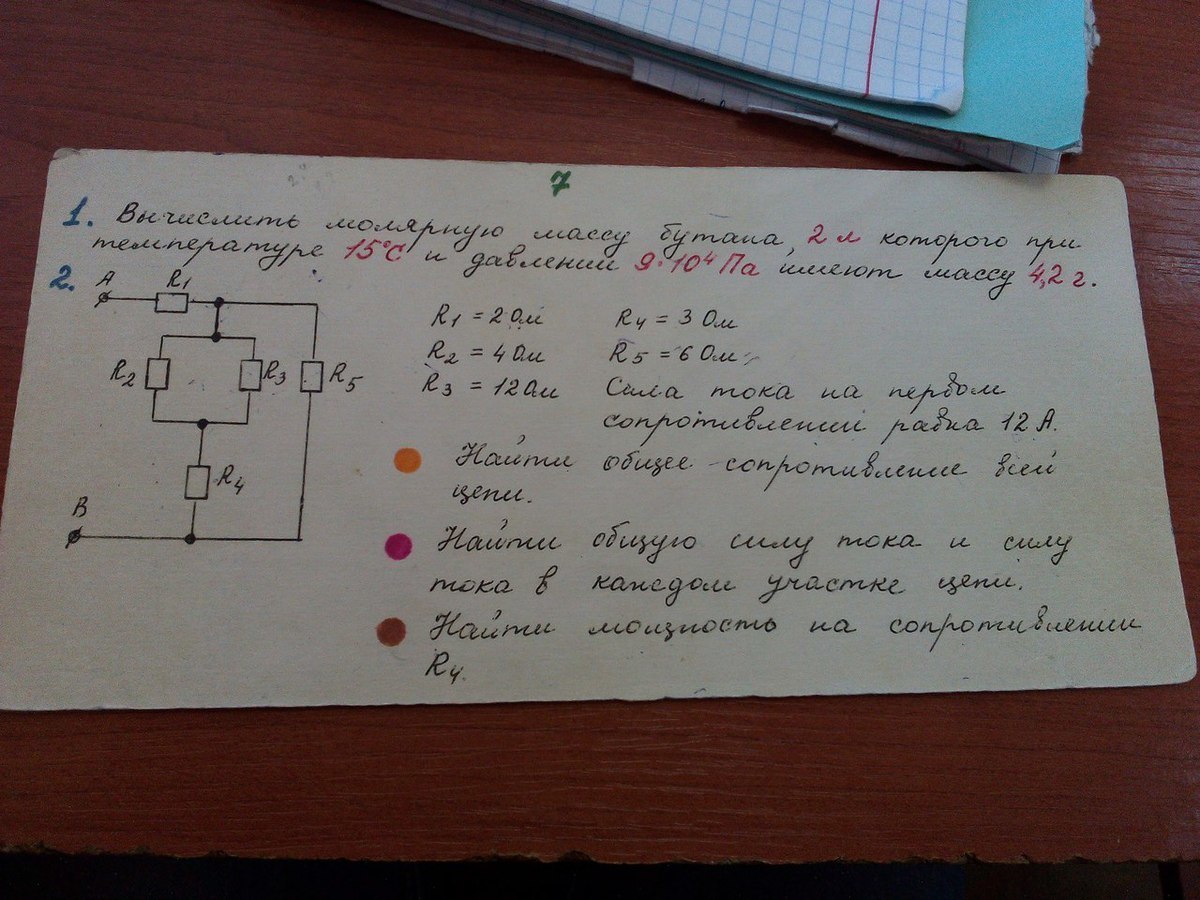 7
1. Вычислить молярную массу бутана, 2 л которого при
температуре 15°С и давлении 9·10⁴ Па имеют массу 4,2 г.
2. A R1
R2 R3 R5
R4
B
R1 = 2 Ом R4 = 3 Ом
R2 = 4 Ом R5 = 6 Ом
R3 = 12 Ом Сила тока на первом
сопротивлении равна 12 А.
Найти общее сопротивление всей
цепи.
Найти общую силу тока и силу
тока в каждом участке цепи.
Найти мощность на сопротивлении
R4.